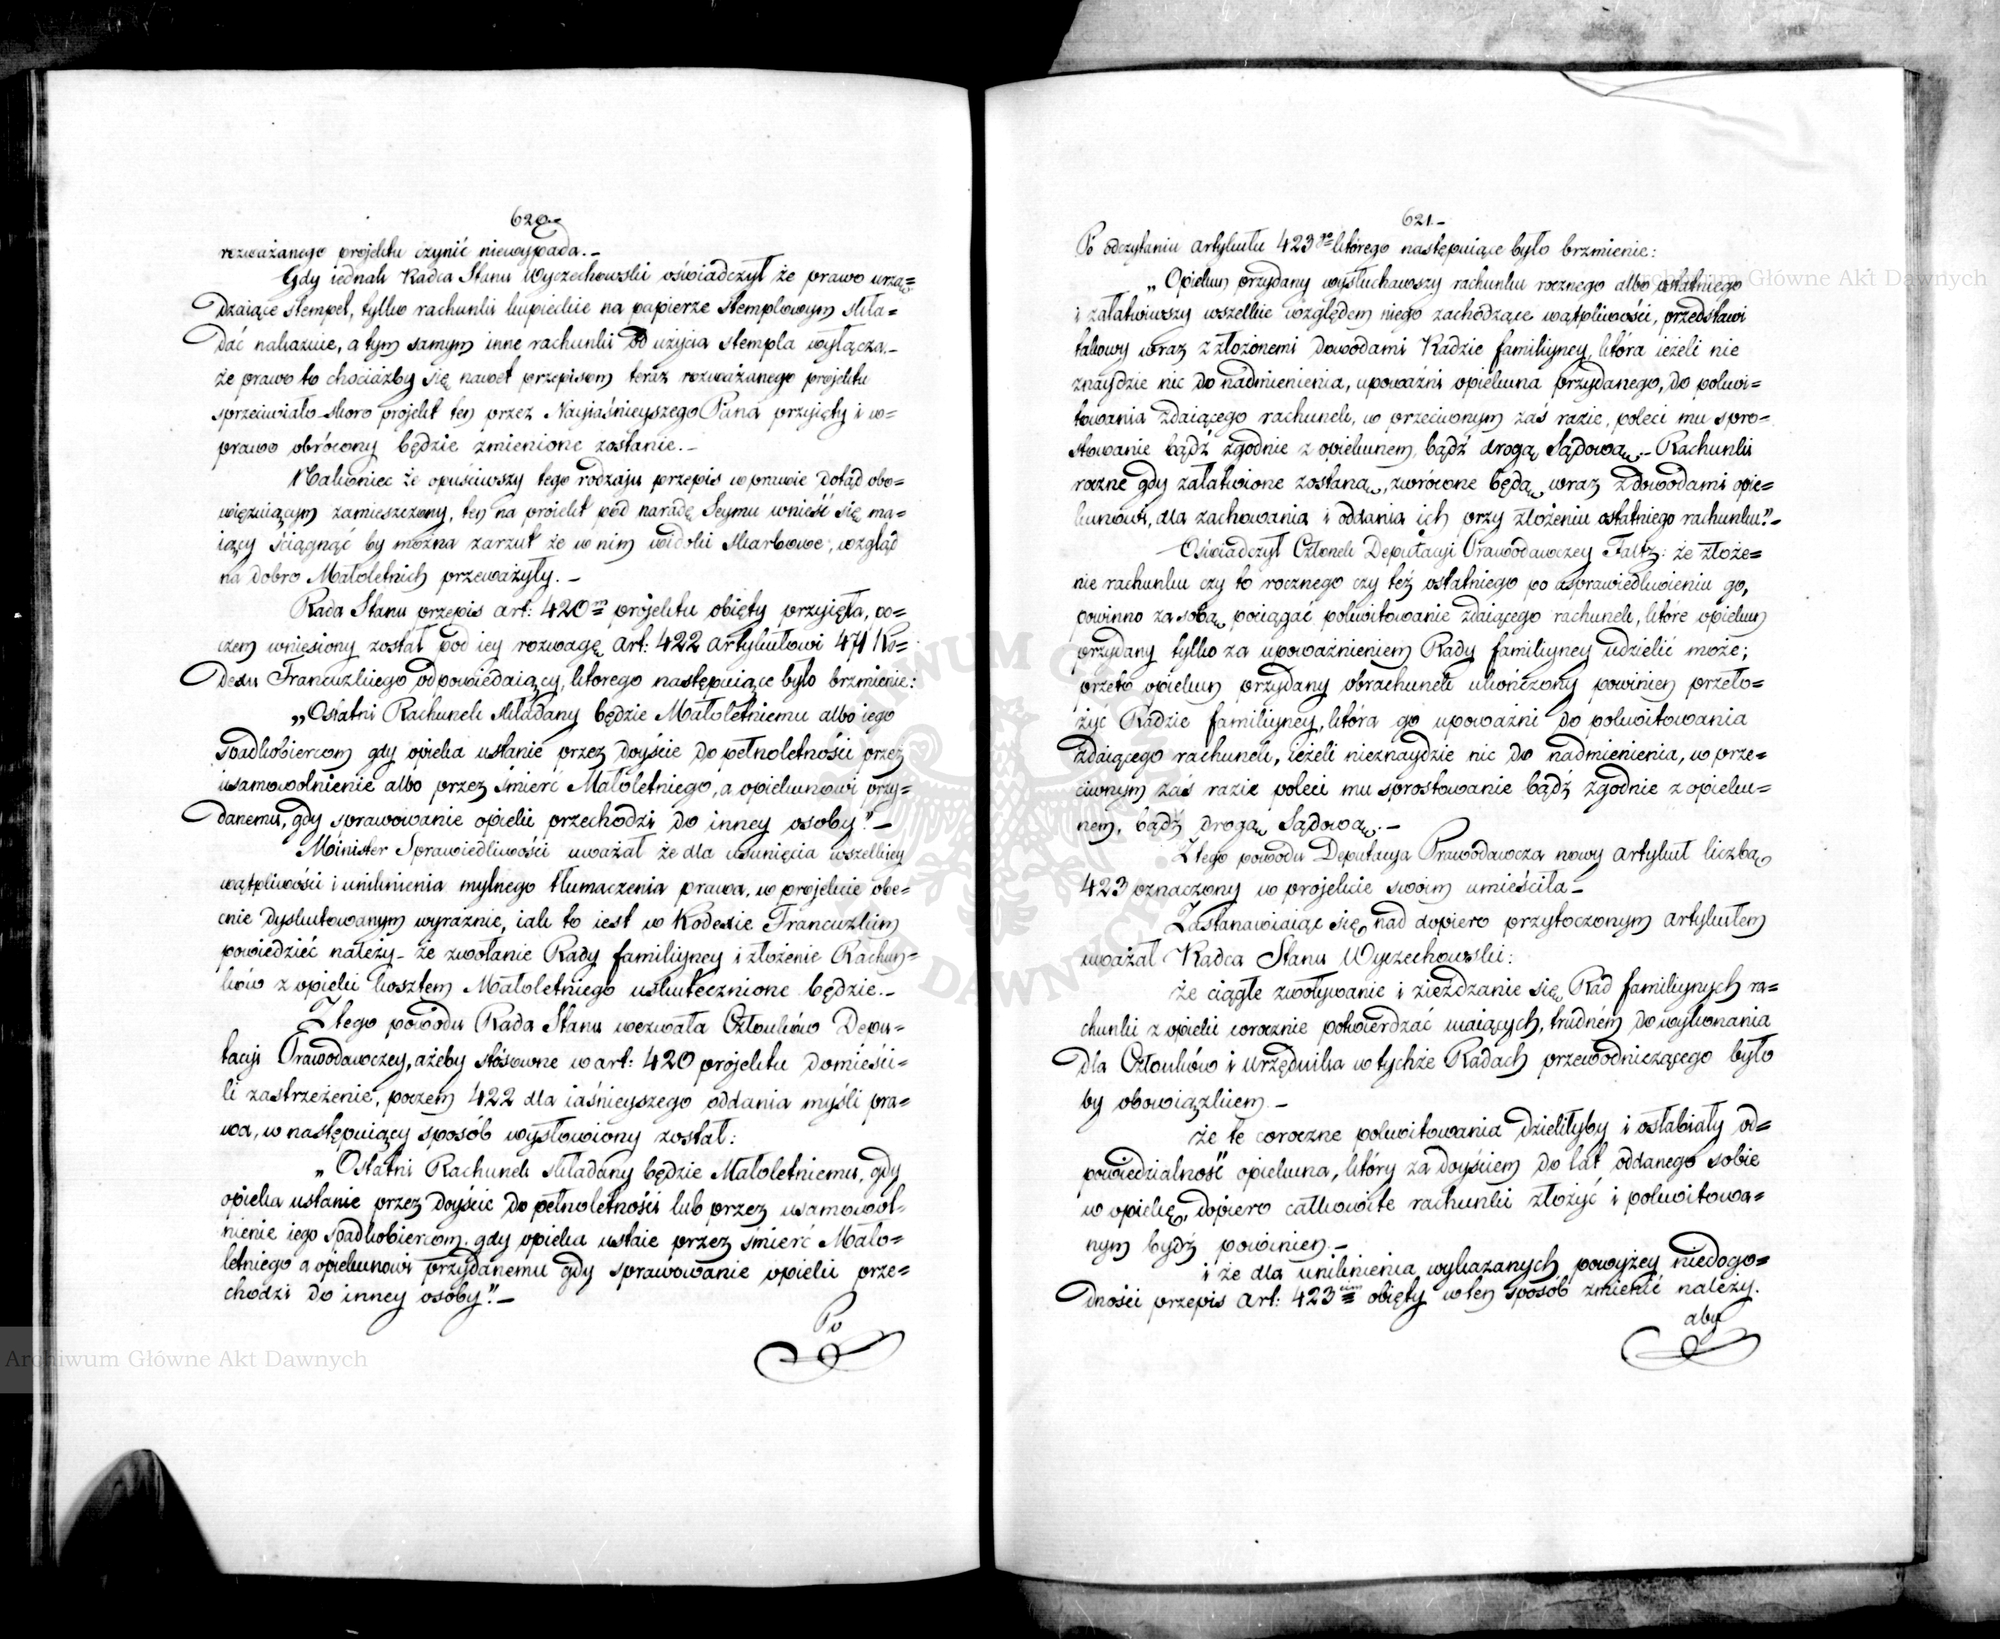 620.
rozważanego projektu czynić niewypada.-
Gdy iednak Radca Stanu Wyczechowski oświadczył że prawo urzą=
dzaiące stempel, tylko rachunki kupieckie na papierze stemplowym skła=
dać nakazuie, a tym samym inne rachunki od użycia stempla wyłącza.-
że prawo to chociażby się nawet przepisom teraz rozważanego projektu
sprzeciwiało skoro projekt ten przez Nayiaśnieyszego Pana przyięty i w=
prawo obrócony będzie zmienione zostanie.-
Nakoniec że opuściwszy tego rodzaju przepis w prawie dotąd obo=
więzuiącym zamieszczony, ten na projekt pod naradę Seymu wnieść się ma=
iący ściągnąć by można zarzut że w nim widoki skarbowe, wzgląd
na dobro Małoletnich przeważyły.-
Rada Stanu przepis art: 420m projektu obięty przyięła, po=
czem wniesiony został pod iey rozwagę art: 422 artykułowi 471 Ko=
dexu Francuzkiego odpowiedaiący, którego następuiące było brzmienie:
„Ostatni Rachunek składany będzie Małoletniemu albo iego
spadkobiercom gdy opieka ustanie przez doyście do pełnoletności przez
usamowolnienie albo przez śmierć Małoletniego, a opiekunowi przy-
danemu, gdy sprawowanie opieki przechodzi do inney osoby".-
Minister Sprawiedliwości uważał że dla usunięcia wszelkiey
wątpliwości i uniknienia mylnego tłumaczenia prawa, w projekcie obe=
cnie dyskutowanym wyraźnie, iak to iest w Kodexie Francuzkim
powiedzieć należy- że zwołanie Rady familiyney i złożenie Rachun=
ków z opieki kosztem Małoletniego uskutecznione będzie.-
Z tego powodu Rada Stanu wezwała Członków Depu=
tacyi Prawodawczey, ażeby stósowne w art: 420 projektu domieści=
li zastrzeżenie, poczem 422 dla iaśnieyszego oddania myśli pra=
wa, w następuiący sposób wysłowiony został:
„Ostatni Rachunek składany będzie Małoletniemu, gdy
opieka ustanie przez doyście do pełnoletności lub przez usamowol=
nienie iego spadkobiercom, gdy opieka ustaie przez śmierć Mało=
letniego a opiekunowi przydanemu gdy sprawowanie opieki prze=
chodzi do inney osoby".-
Po
621.-
Po odczytaniu artykułu 423go którego następuiące było brzmienie:
„Opiekun przydany wysłuchawszy rachunku rocznego albo ostatniego
i załatwiwszy wszelkie względem niego zachódzące wątpliwości, przedstawi
takowy wraz z złożonemi dowodami Radzie familiyney, która ieżeli nie
znaydzie nic do nadmienienia, upoważni opiekuna przydanego, do pokwi=
towania zdaiącego rachunek, w przeciwnym zaś razie, poleci mu spro=
stowanie bądź zgodnie z opiekunem, bądź drogą Sądową.- Rachunki
roczne gdy załatwione zostaną, zwrócone będą wraz z dowodami opie=
kunowi, dla zachowania i oddania ich przy złożeniu ostatniego rachunku".-
Oświadczył Członek Deputacyi Prawodawczey Faltz: że złoże=
nie rachunku czy to rocznego czy też ostatniego po usprawiedliwieniu go,
powinno za sobą pociągać pokwitowanie zdaiącego rachunek, które opiekun
przydany tylko za upoważnieniem Rady familiyney udzielić może;
przeto opiekun przydany obrachunek ukończony powinien przeło=
żyć Radzie familiyney, która go upoważni do pokwitowania
zdaiącego rachunek, ieżeli nieznaydzie nic do nadmienienia, w prze=
ciwnym zaś razie poleci mu sprostowanie bądź zgodnie z opieku=
nem, bądź drogą Sądową.-
Z tego powodu Deputacya Prawodawcza nowy artykuł liczbą
423 oznaczony w projekcie swoim umieściła-
Zastanawiaiąc się nad dopiero przytoczonym artykułem
uważał Radca Stanu Wyczechowski:
że ciągłe zwoływanie i zieżdzanie się Rad familiynych ra=
chunki z opieki corocznie potwierdzać maiących, trudném do wykonania
dla Członków i urzędnika w tychże Radach przewodniczącego było
by obowiązkiem.-
że te coroczne pokwitowania dzieliłyby i osłabiały od=
powiedzialność opiekuna, który za doyściem do lat oddanego sobie
w opiekę, dopiero całkowite rachunki złożyć i pokwitowa=
nym bydź powinien.-
i że dla uniknienia wykazanych powyżey niedogo=
dności przepis art: 423cim obięty w ten sposób zmienić należy.
aby
Archiwum Główne Akt Dawnych
Archiwum Główne Akt Dawnych
ARCHIWUM GŁÓWNE AKT DAWNYCH